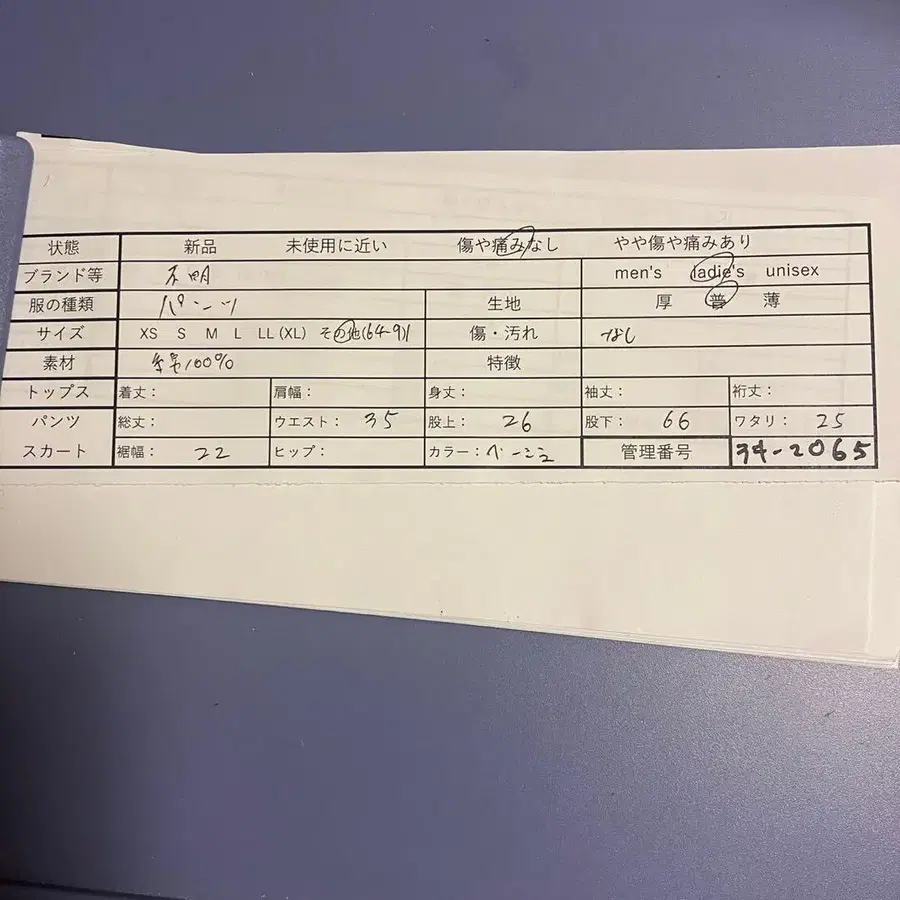 状態 新品 未使用に近い 傷や痛みなし やや傷や痛みあり
ブランド等 不明 men's ladie's unisex
服の種類 パンツ 生地 厚 普 薄
サイズ XS S M L LL(XL) その他(64-91 傷・汚れ なし
素材 綿100% 特徴
トップス 着丈： 肩幅： 身丈： 袖丈： 裄丈：
パンツ 総丈： ウエスト： 35 股上： 26 股下： 66 ワタリ： 25
スカート 裾幅： 22 ヒップ： カラー：ベージュ 管理番号 34-2065